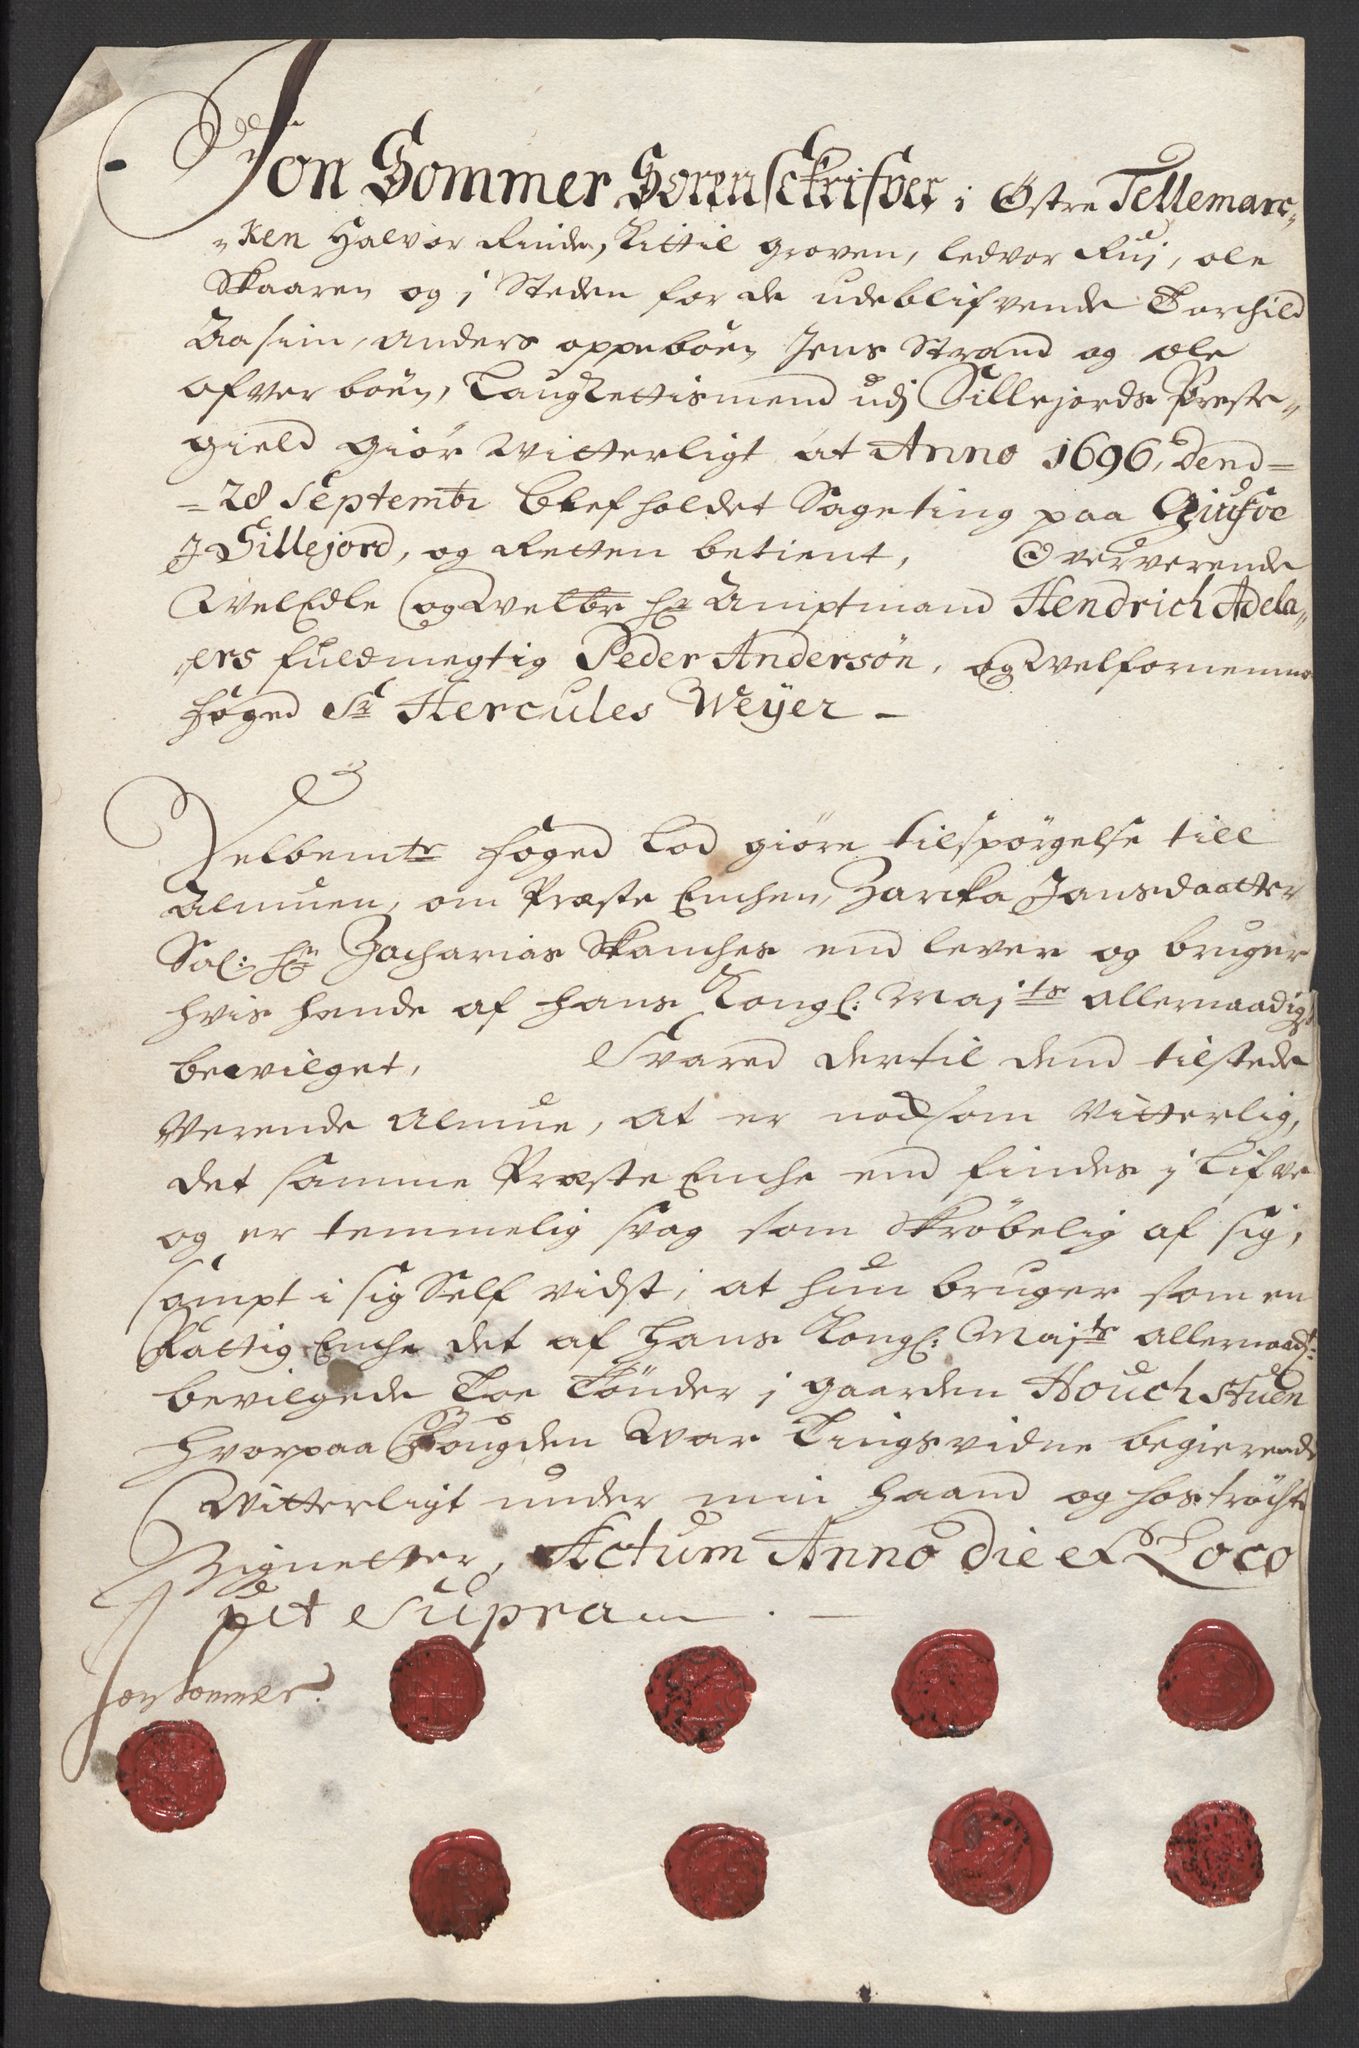 Jon Sommer Sorenschrifver i Østre Tellemarc-
-ken Halvor Rinde, Kittil groven, ledvor Rui, ole
Skaaren og i Steden for de udeblifvende Torchild
Aasim, Anders oppeboen Jens Strand og ole
ofverboen, Laugrettismend udj Sillejords Preste-
gield giør Witterligt at Anno 1696, dend=
=28 Septembr blef holdet Sageting paa
J Sillejord, og Retten betient, Oververende
WelEdle og Welbr hr Amptmand Hendrich Adela-
ers fuldmegtig Peder Andersøn, og Welfornemme
foged Sr Hercules Weyer -
Velbemte foged Lod giøre tilspørgelse till
Almuen, om Præste Enchen, Jansdaatter
Sal: hr Zacharias Skanches end lever og bruger
hvis hende af hans Kongl: Majts allernaadigst
bevilget, Svared dertil dend tilstede
Verende Almue, at er nodsom Vitterlig,
det samme Præste Enche end findes i Lifve
og er temmelig svag som skrøbelig af sig,
sampt i sig Self vidst, at hun bruger som en
Fattig Enche det af hans Kongl: Majts allernaadst:
bevilgede Toe Tønder i gaarden Houchstuen
hvorpaa Fougden War Tingsvidne begierende
Witterligt under min haand og hostrøchte
Zignetter, Actum Anno die et Loco
ut Supra
Jon Sommer.